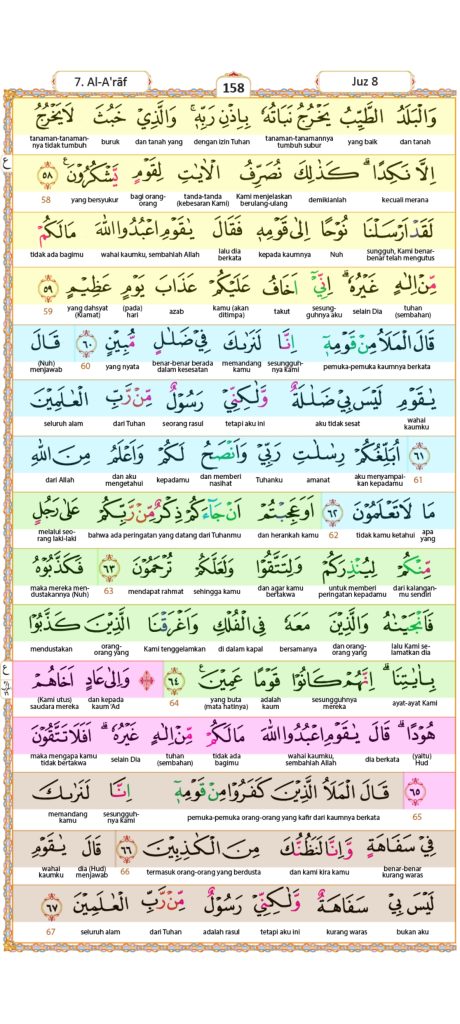 7. Al-A'rāf
158
Juz 8
وَالْبَلَدُ الطَّيِّبُ يَخْرُجُ نَبَاتُهٗ بِاِذْنِ رَبِّهٖۚ وَالَّذِيْ خَبُثَ لَا يَخْرُجُ
dan tanah yang baik tanaman-tanamannya tumbuh subur dengan izin Tuhan dan tanah yang buruk tanaman-tanaman-nya tidak tumbuh
اِلَّا نَكِدًاۗ كَذٰلِكَ نُصَرِّفُ الْاٰيٰتِ لِقَوْمٍ يَّشْكُرُوْنَ ࣖ ٥٨
kecuali merana demikianlah Kami menjelaskan berulang-ulang tanda-tanda (kebesaran Kami) bagi orang-orang yang bersyukur 58
لَقَدْ اَرْسَلْنَا نُوْحًا اِلٰى قَوْمِهٖ فَقَالَ يٰقَوْمِ اعْبُدُوا اللّٰهَ مَا لَكُمْ
sungguh, Kami benar-benar telah mengutus Nuh kepada kaumnya lalu dia berkata wahai kaumku, sembahlah Allah tidak ada bagimu
مِّنْ اِلٰهٍ غَيْرُهٗۗ اِنِّيْٓ اَخَافُ عَلَيْكُمْ عَذَابَ يَوْمٍ عَظِيْمٍ ٥٩
tuhan (sembahan) selain Dia sesung-guhnya aku takut kamu (akan ditimpa) azab (pada) hari yang dahsyat (Kiamat) 59
قَالَ الْمَلَاُ مِنْ قَوْمِهٖٓ اِنَّا لَنَرٰىكَ فِيْ ضَلٰلٍ مُّبِيْنٍ ٦٠ قَالَ
pemuka-pemuka kaumnya berkata sesungguh-nya Kami memandang kamu benar-benar berada dalam kesesatan yang nyata 60 (Nuh) menjawab
يٰقَوْمِ لَيْسَ بِيْ ضَلٰلَةٌ وَّلٰكِنِّيْ رَسُوْلٌ مِّنْ رَّبِّ الْعٰلَمِيْنَ
wahai kaumku aku tidak sesat tetapi aku ini seorang rasul dari Tuhan seluruh alam
٦١ اُبَلِّغُكُمْ رِسٰلٰتِ رَبِّيْ وَاَنْصَحُ لَكُمْ وَاَعْلَمُ مِنَ اللّٰهِ
61 aku menyampai-kan kepadamu amanat Tuhanku dan memberi nasihat kepadamu dan aku mengetahui dari Allah
مَا لَا تَعْلَمُوْنَ ٦٢ اَوَعَجِبْتُمْ اَنْ جَاۤءَكُمْ ذِكْرٌ مِّنْ رَّبِّكُمْ عَلٰى رَجُلٍ
apa yang tidak kamu ketahui 62 dan herankah kamu bahwa ada peringatan yang datang dari Tuhanmu melalui seo-rang laki-laki
مِّنْكُمْ لِيُنْذِرَكُمْ وَلِتَتَّقُوْا وَلَعَلَّكُمْ تُرْحَمُوْنَ ٦٣ فَكَذَّبُوْهُ
dari kalangan-mu sendiri untuk memberi peringatan kepadamu dan agar kamu bertakwa sehingga kamu mendapat rahmat 63 maka mereka men-dustakannya (Nuh)
فَاَنْجَيْنٰهُ وَالَّذِيْنَ مَعَهٗ فِى الْفُلْكِ وَاَغْرَقْنَا الَّذِيْنَ كَذَّبُوْا
lalu Kami se-lamatkan dia dan orang-orang yang bersamanya di dalam kapal Kami tenggelamkan orang-orang yang mendustakan
بِاٰيٰتِنَاۗ اِنَّهُمْ كَانُوْا قَوْمًا عَمِيْنَ ࣖ ٦٤ ۞ وَاِلٰى عَادٍ اَخَاهُمْ
ayat-ayat Kami sesungguhnya mereka adalah kaum yang buta (mata hatinya) 64 dan kepada kaum 'Ad (Kami utus) saudara mereka
هُوْدًاۗ قَالَ يٰقَوْمِ اعْبُدُوا اللّٰهَ مَا لَكُمْ مِّنْ اِلٰهٍ غَيْرُهٗۗ اَفَلَا تَتَّقُوْنَ
(yaitu) Hud dia berkata wahai kaumku, sembahlah Allah tidak ada bagimu tuhan (sembahan) selain Dia maka mengapa kamu tidak bertakwa
٦٥ قَالَ الْمَلَاُ الَّذِيْنَ كَفَرُوْا مِنْ قَوْمِهٖٓ اِنَّا لَنَرٰىكَ
65 pemuka-pemuka orang-orang yang kafir dari kaumnya berkata sesungguh-nya kami memandang kamu
فِيْ سَفَاهَةٍ وَّاِنَّا لَنَظُنُّكَ مِنَ الْكٰذِبِيْنَ ٦٦ قَالَ يٰقَوْمِ
benar-benar kurang waras dan kami kira kamu termasuk orang-orang yang berdusta 66 dia (Hud) menjawab wahai kaumku
لَيْسَ بِيْ سَفَاهَةٌ وَّلٰكِنِّيْ رَسُوْلٌ مِّنْ رَّبِّ الْعٰلَمِيْنَ ٦٧
bukan aku kurang waras tetapi aku ini adalah rasul dari Tuhan seluruh alam 67